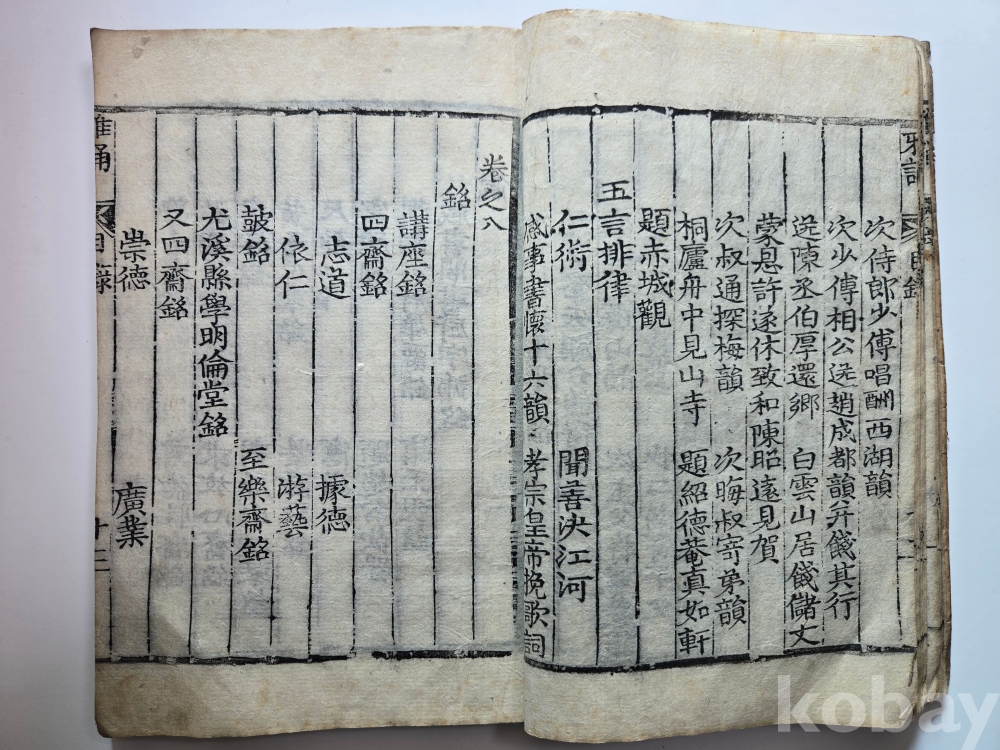 次侍郎少傅唱酬西湖韻
次少傅相公送趙成都韻并餞其行
送陳丞伯厚還鄉 白雲山居餞儲文
蒙恩許遂休致和陳昭遠見賀
次叔通探梅韻 次晦叔寄弟韻
桐廬舟中見山寺 題紹德菴真如軒
題赤城觀
五言排律
仁術 聞善決江河
感事書懷十六韻 孝宗皇帝挽歌詞
卷之八
銘
講座銘
四齋銘
志道 據德
依仁 游藝
鼓銘 至樂齋銘
尤溪縣學明倫堂銘
又四齋銘
崇德 廣業
雅誦 目錄 十三
kobay